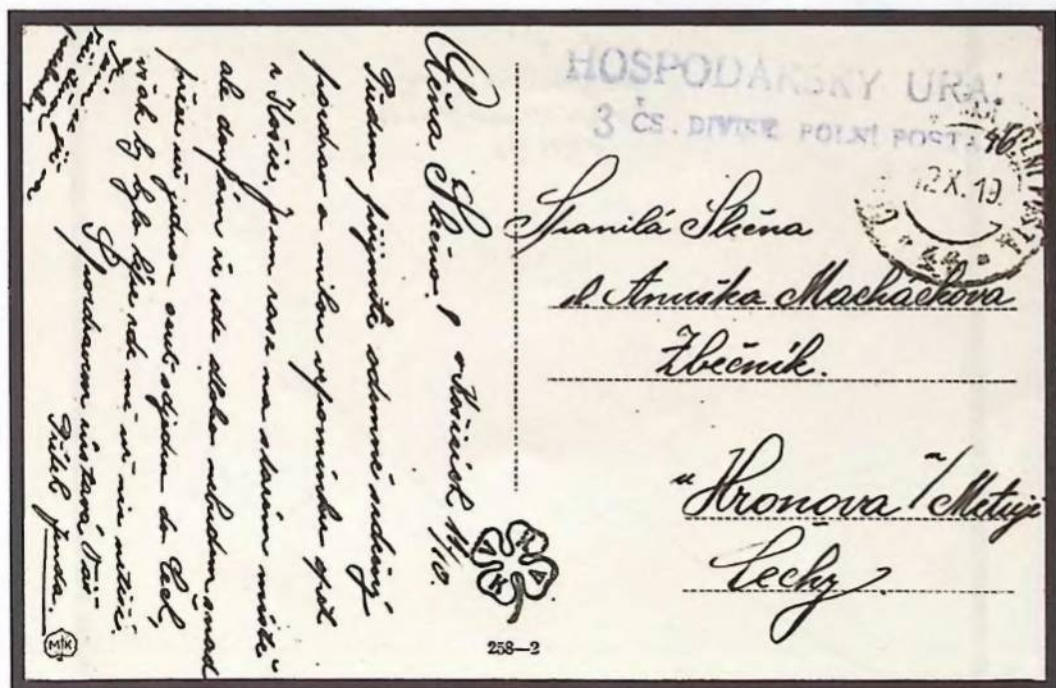 HOSPODÁŘSKÝ ÚŘA
3 ČS. DIVISE POLNÍ POŠTA
46
POLNÍ POŠTA
12.X.19.
Spanilá Slečna
sl. Anuška Macháčkova
Žbečník.
u Hronova n/Metují
Čechy
Ctěná Slečno!
v Košicích
Předem přijměte odemně srdečný
pozdrav a milou vzpomínku opět
z Košic. Jsem zase na starém místě
ale doufám že zde dlouho nebudem snad
přece už jednou odjedem do Čech,
však by bylo lépe zde mě už nic netěší.
S pozdravem zůstává Váš
Přítel Jenda.
258—2
MK